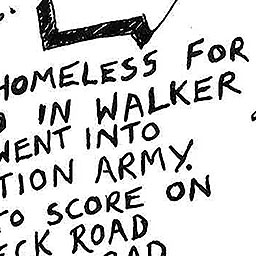 HOMELESS FOR
IN WALKER
WENT INTO
TION ARMY.
TO SCORE ON
ECK ROAD
ROAD